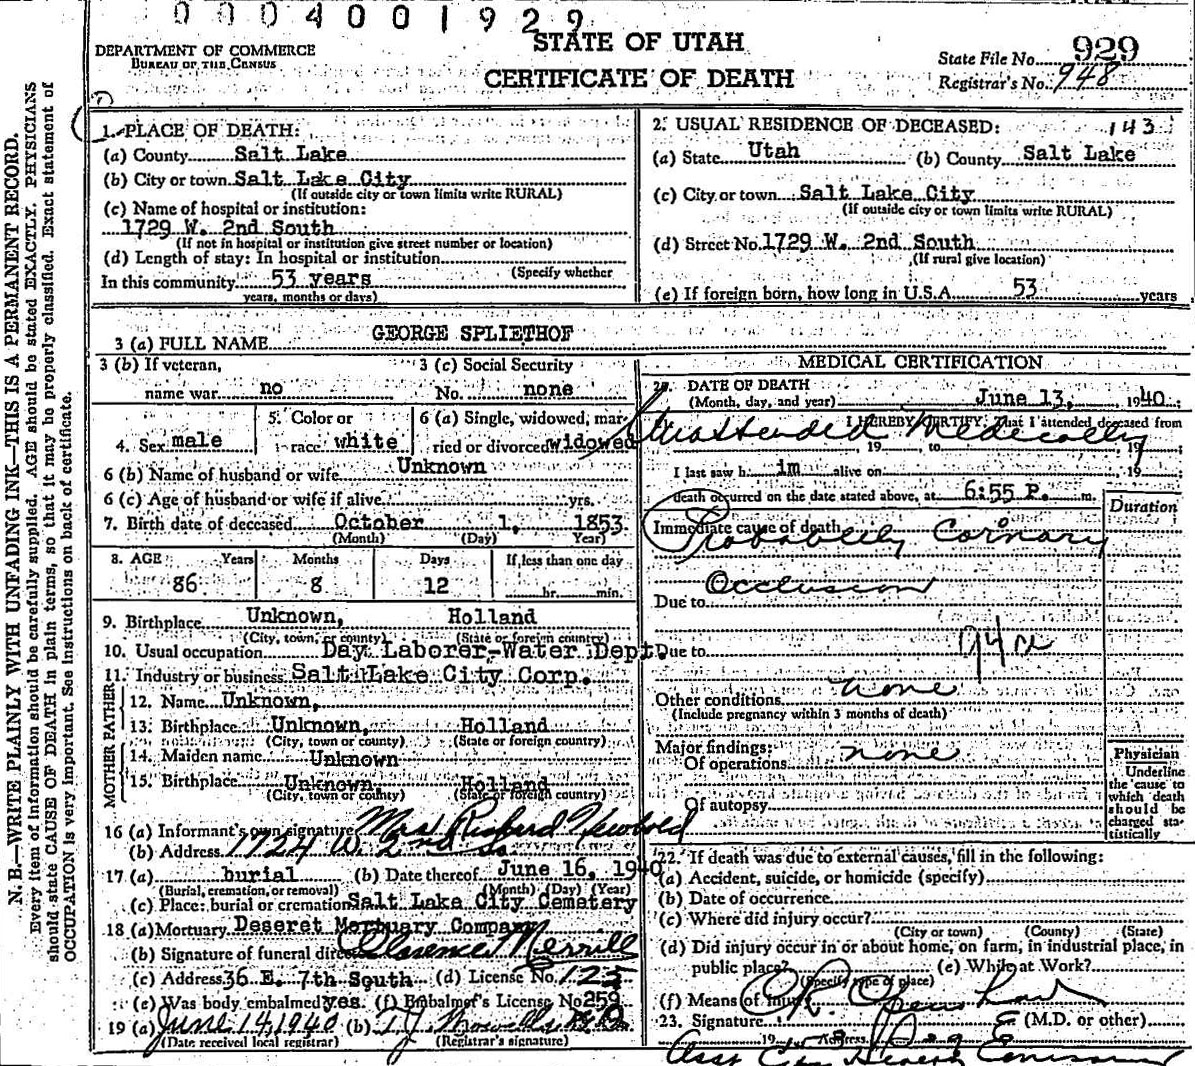 0004001929
DEPARTMENT OF COMMERCE
BUREAU OF THE CENSUS
STATE OF UTAH
CERTIFICATE OF DEATH
State File No. 929
Registrar's No. 948
N. B.—WRITE PLAINLY WITH UNFADING INK—THIS IS A PERMANENT RECORD.
Every item of information should be carefully supplied. AGE should be stated EXACTLY. PHYSICIANS
should state CAUSE OF DEATH in plain terms, so that it may be properly classified. Exact statement of
OCCUPATION is very important. See instructions on back of certificate.
1. PLACE OF DEATH:
(a) County Salt Lake
(b) City or town Salt Lake City
(If outside city or town limits write RURAL)
(c) Name of hospital or institution:
1729 W. 2nd South
(If not in hospital or institution give street number or location)
(d) Length of stay: In hospital or institution
(Specify whether
In this community 53 years
years, months or days)
2. USUAL RESIDENCE OF DECEASED: 143
(a) State Utah (b) County Salt Lake
(c) City or town Salt Lake City
(If outside city or town limits write RURAL)
(d) Street No. 1729 W. 2nd South
(If rural give location)
(e) If foreign born, how long in U.S.A. 53 years
3 (a) FULL NAME GEORGE SPLIETHOF
3 (b) If veteran, 3 (c) Social Security
name war no No. none
4. Sex male 5. Color or race white 6 (a) Single, widowed, married or divorced widowed
6 (b) Name of husband or wife Unknown
6 (c) Age of husband or wife if alive yrs.
7. Birth date of deceased October 1, 1853
(Month) (Day) Year)
8. AGE Years Months Days If less than one day
86 8 12 hr. min.
9. Birthplace Unknown, Holland
(City, town, or county) (State or foreign country)
10. Usual occupation Day Laborer-Water Dept.
11. Industry or business Salt Lake City Corp.
FATHER
12. Name Unknown,
13. Birthplace Unknown, Holland
(City, town or county) (State or foreign country)
MOTHER
14. Maiden name Unknown
15. Birthplace Unknown Holland
(City, town or county) (State or foreign country)
16 (a) Informant's own signature Mrs Richard Newbold
(b) Address 1724 W. 2nd So
17 (a) burial (b) Date thereof June 16, 1940
(Burial, cremation, or removal) (Month) (Day) (Year)
(c) Place: burial or cremation Salt Lake City Cemetery
18 (a) Mortuary Deseret Mortuary Company
(b) Signature of funeral director Clarence Merrill
(c) Address 36 E. 7th South (d) License No. 125
(e) Was body embalmed yes. (f) Embalmer's License No 259
19 (a) June 14, 1940 (b) T. J.
(Date received local registrar) (Registrar's signature)
MEDICAL CERTIFICATION
20. DATE OF DEATH
(Month, day, and year) June 13, 1940
I HEREBY CERTIFY, That I attended deceased from
Unattended Medically
19 to 19
I last saw h im alive on 19
death occurred on the date stated above, at 6:55 P. m.
Duration
Immediate cause of death
Probably Cornary
Occlusion
Due to
Due to 94a
Other conditions none
(Include pregnancy within 3 months of death)
Major findings:
Of operations none
Of autopsy
Physician
Underline
the cause to
which death
should be
charged sta-
tistically
22. If death was due to external causes, fill in the following:
(a) Accident, suicide, or homicide (specify)
(b) Date of occurrence
(c) Where did injury occur?
(City or town) (County) (State)
(d) Did injury occur in or about home, on farm, in industrial place, in
public place? (e) While at Work?
(Specify type of place)
(f) Means of injury
23. Signature (M.D. or other)
19 Address
Asst City Health